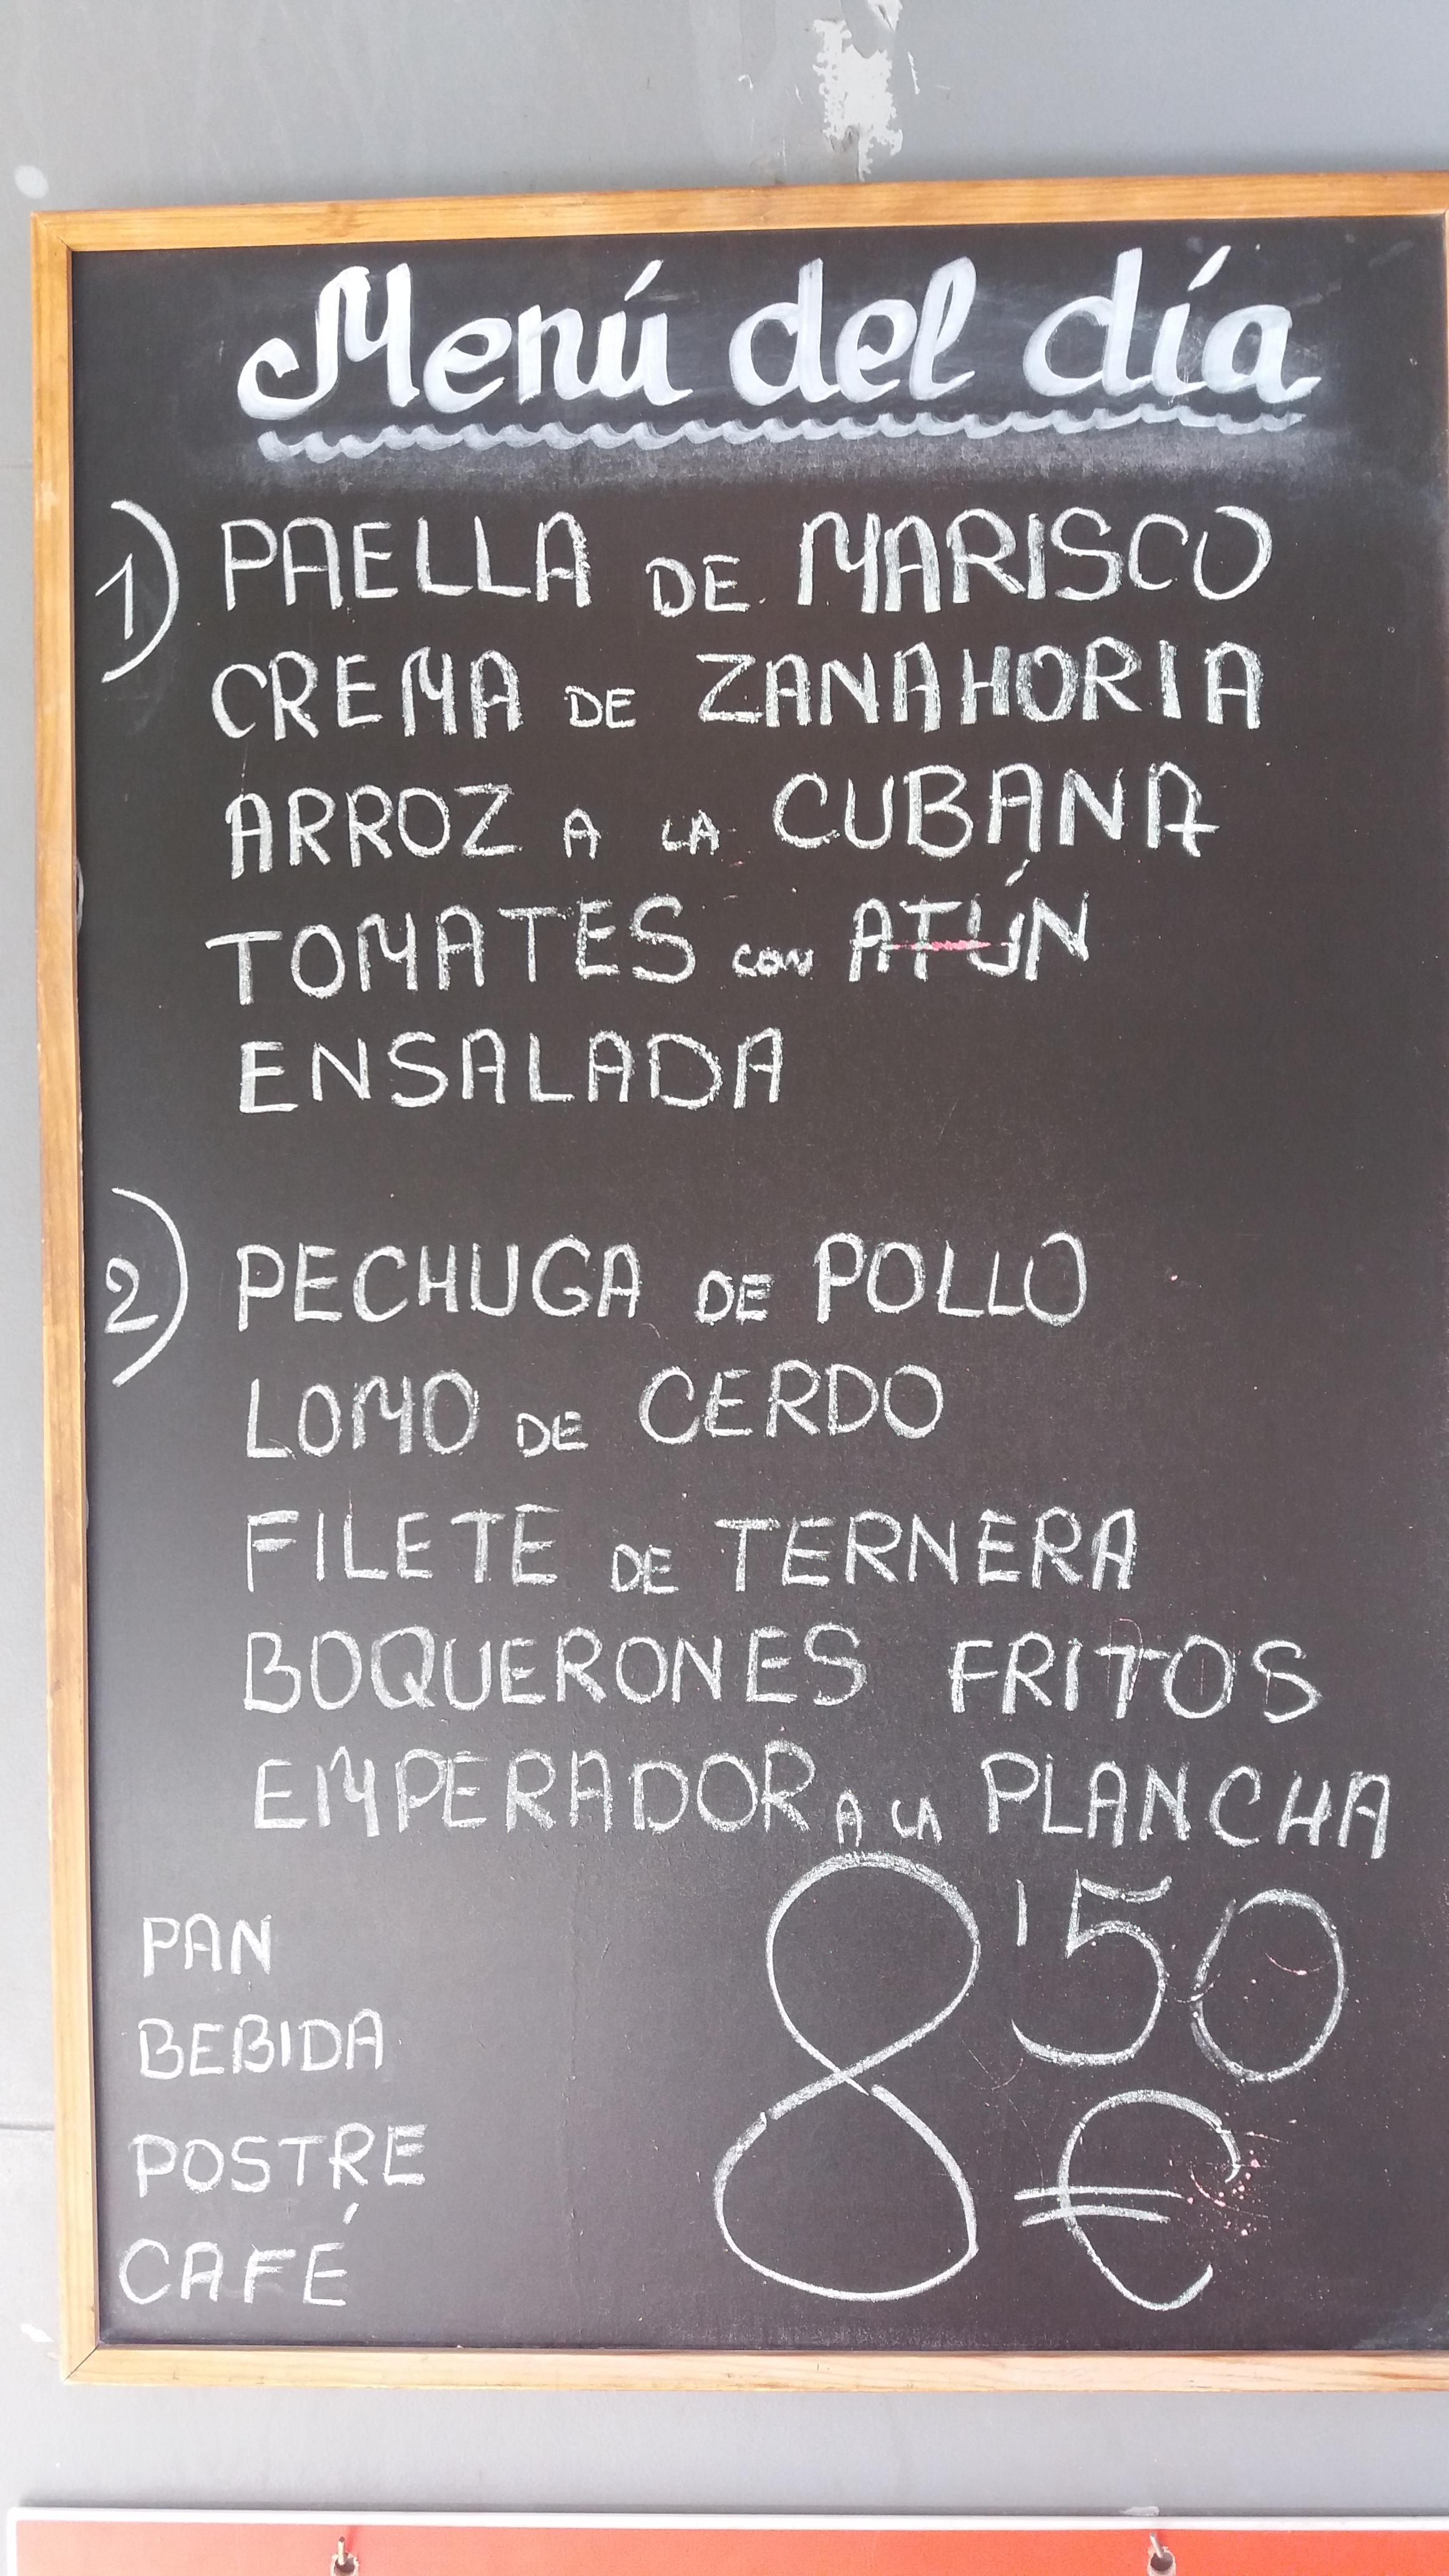 Menú del día
1) PAELLA DE MARISCO
CREMA DE ZANAHORIA
ARROZ A LA CUBANA
TOMATES CON ATÚN
ENSALADA
2) PECHUGA DE POLLO
LOMO DE CERDO
FILETE DE TERNERA
BOQUERONES FRITOS
EMPERADOR A LA PLANCHA
PAN
BEBIDA
POSTRE
CAFÉ
8'50
€